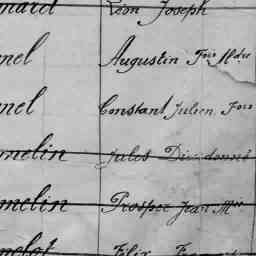 nard Léon Joseph
nel Augustin Fois Mdre
nel Constant Julien Fois
melin Jules Dieudonné
melin Prosper Jean Mie
melot Félix